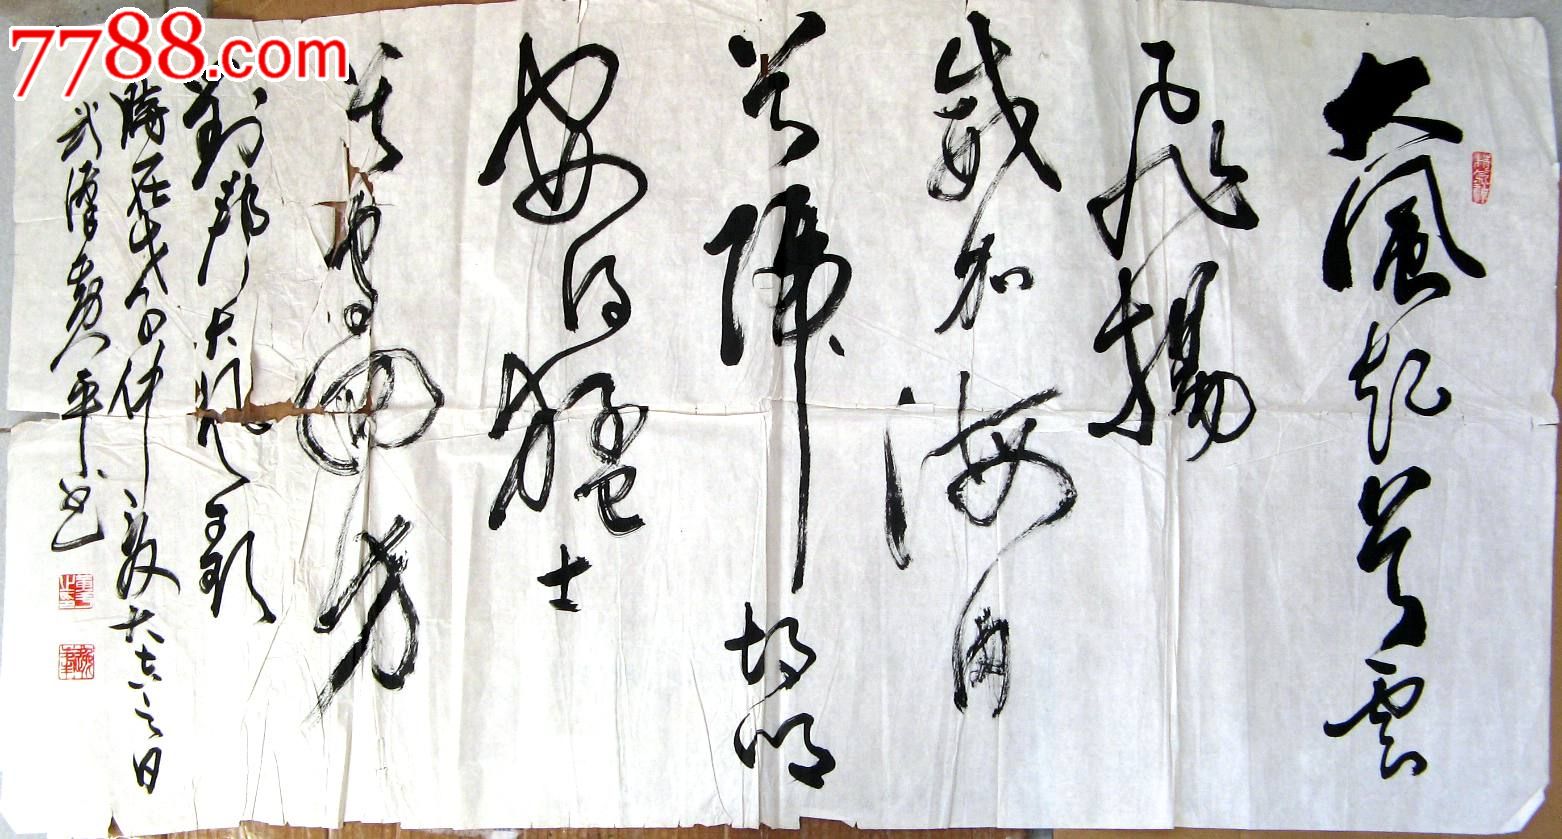 7788.com
大風起兮雲
飛揚
威加海内
兮歸故鄉
安得猛士
兮守四方
劉邦大風歌
時在戊子仲夏大吉之日
武漢平书